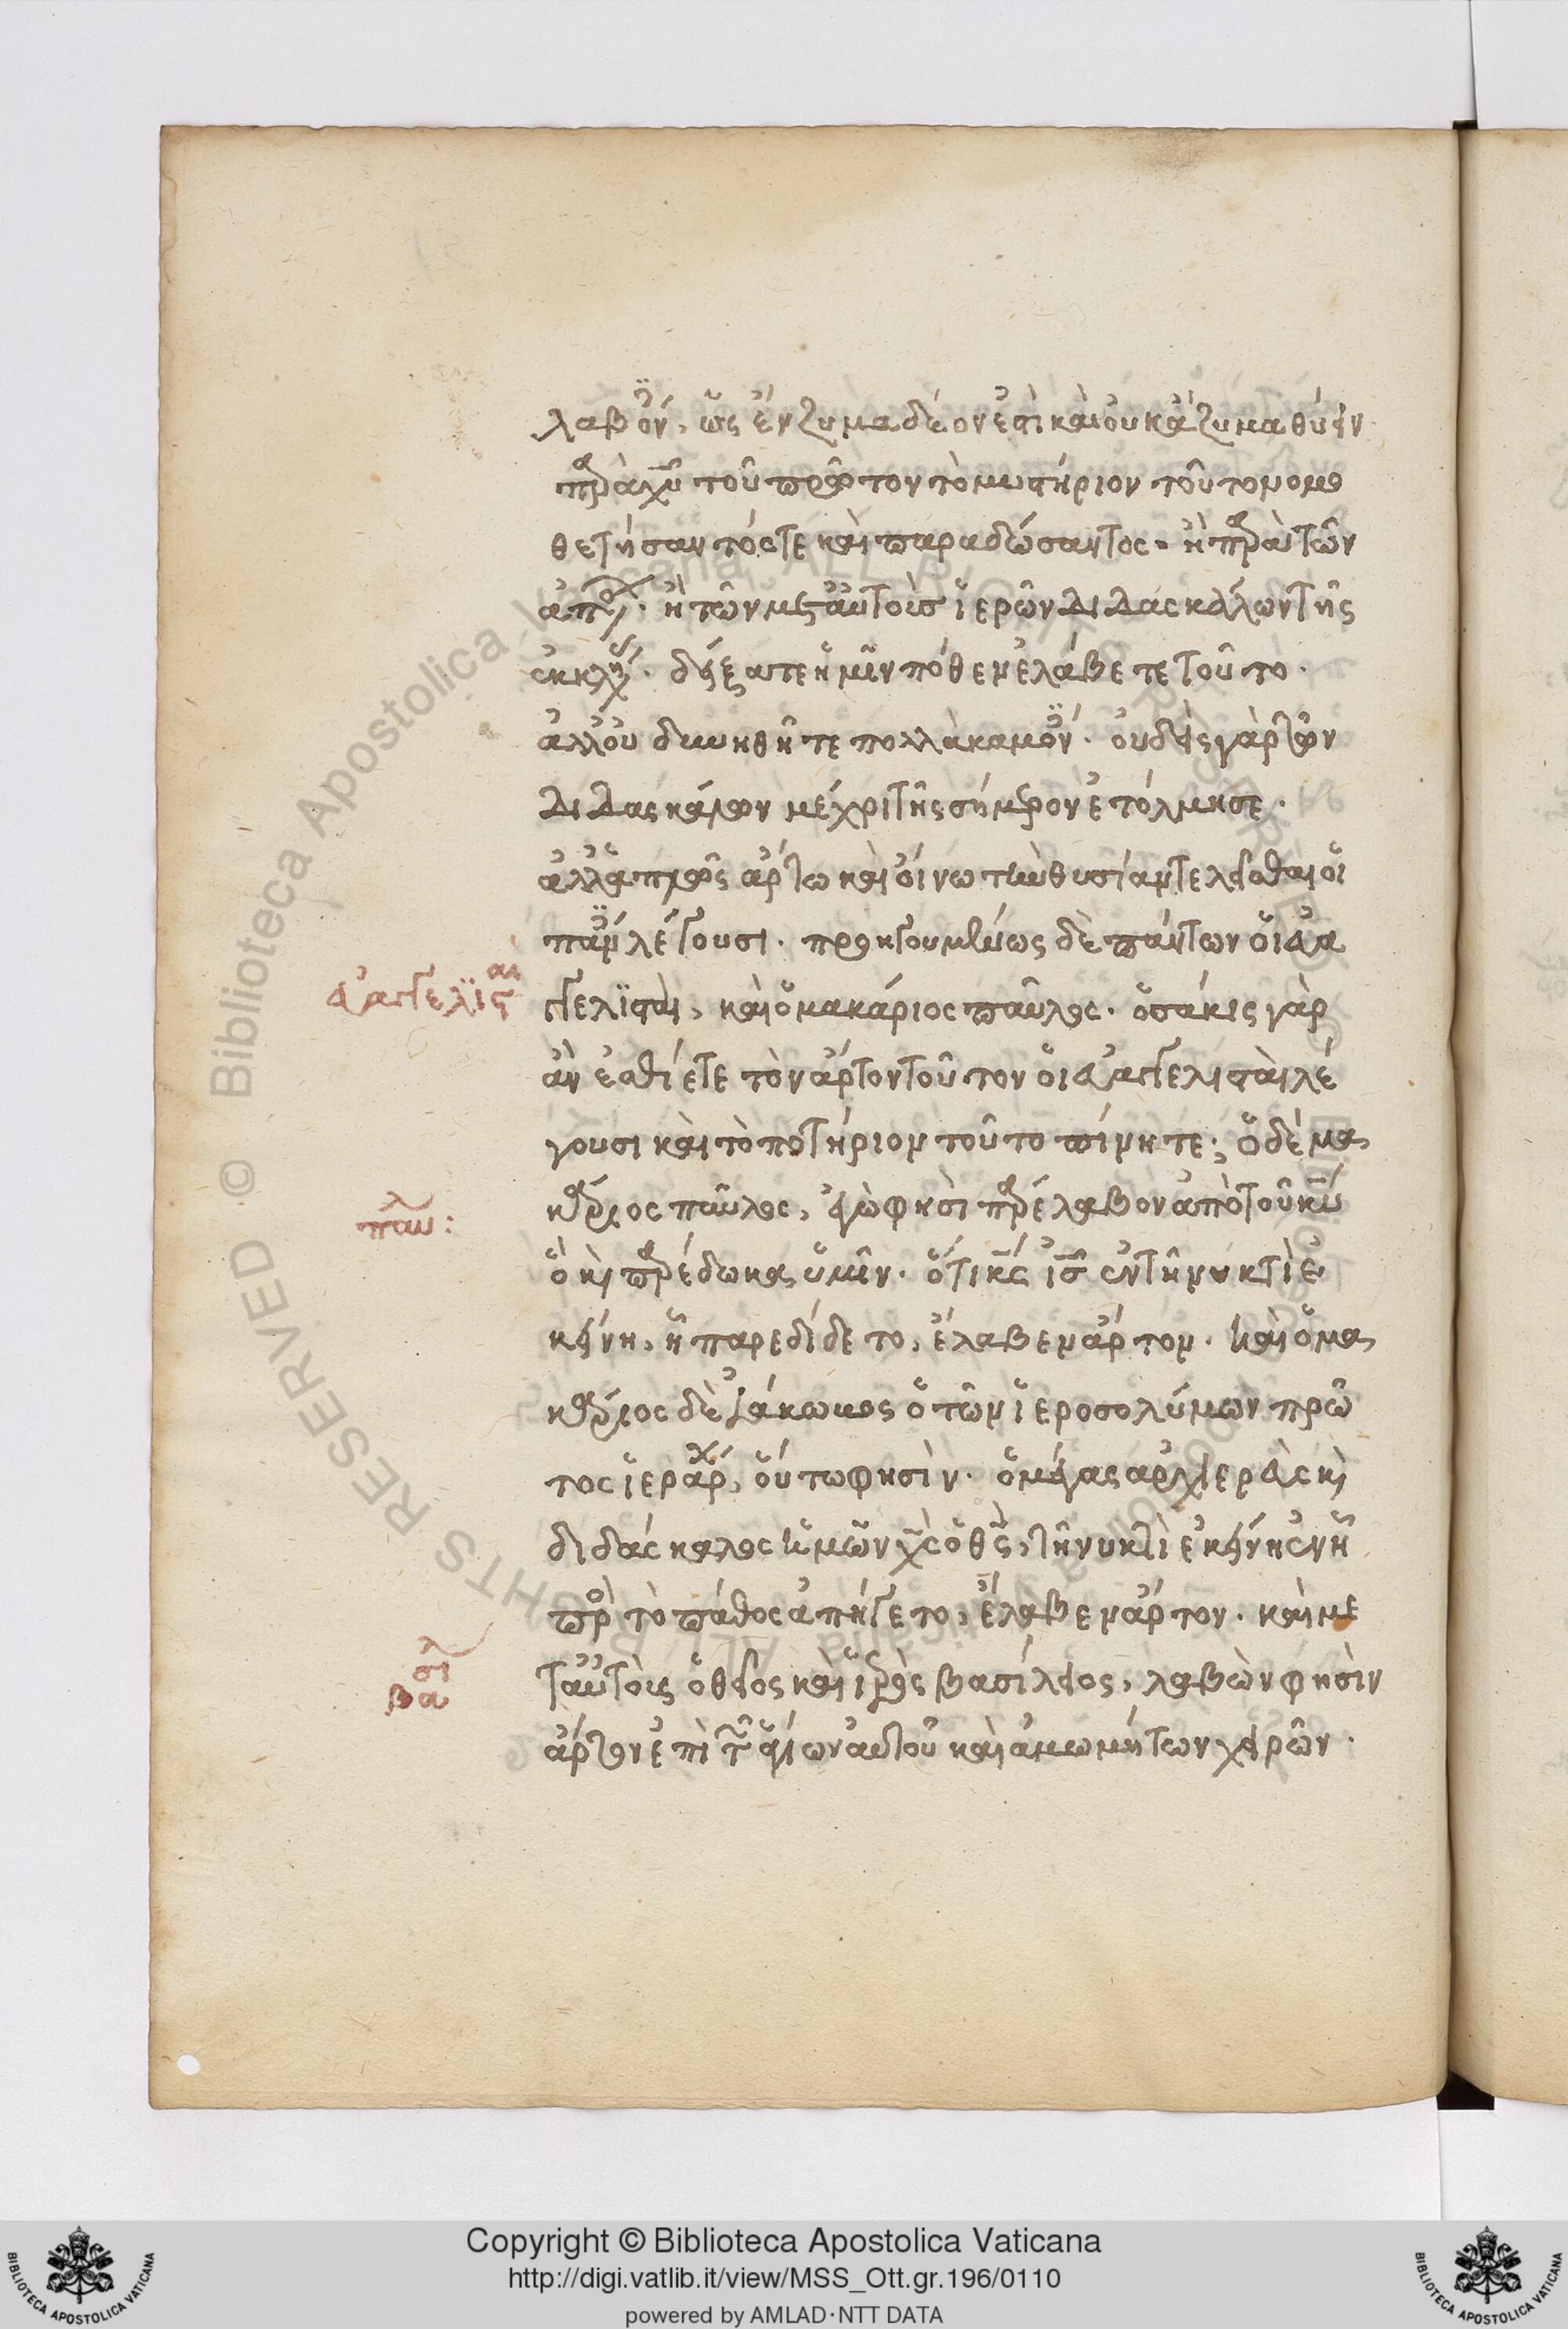 λαβόν, ὡς ἔνζυμα δέον ἐστὶ καὶ οὐκ ἄζυμα θύειν
πρὰ χυ τοῦ πρῶτον τὸ μυστήριον τοῦτο νομο
θετήσαντός τε καὶ παραδώσαντος. ἢ πρὰ τῶν
ἀπο. ἢ τῶν μετ αὐτοὺς ἱερῶν διδασκάλων τῆς
ἐκκλη. δείξατε ἡμῖν πόθεν ἐλάβετε τοῦτο.
ἀλλ οὐ δυνηθῆτε πολλὰ καμόν. οὐδεὶς γὰρ τῶν
διδασκάλων μέχρι τῆς σήμερον ἐτόλμησε.
ἀλλ ἁπλῶς ἄρτω καὶ οἴνω τὴν θυσίαν τελεῖσθαι οἱ
πάν λέγουσι. προηγουμένως δὲ πάντων οἱ εὐα
γγελϊσταὶ, καὶ ὁ μακάριος παῦλος. ὁσάκις γὰρ
εὐαγγελϊσται
ἂν ἐσθίετε τὸν ἄρτον τοῦτον οἱ εὐαγγελισταὶ λέ
γουσι καὶ τὸ ποτήριον τοῦτο πίνητε. ὁ δὲ μα
κάριος παῦλος, ἐγὼ φησὶ πρέλαβον ἀπὸ τοῦ κυ
παυλ:
ὃ κ πρέδωκα ὑμῖν. ὅτι κς ις ἐν τῆ νυκτὶ ἐ
κείνη, ἧ παρεδίδετο, ἔλαβεν ἄρτον. καὶ ὁ μα
κάριος δὲ ἰάκωβος ὁ τῶν ἱεροσολύμων πρῶ
τος ἱεράρχ, οὕτω φησὶν. ὁ μέγας ἀρχιερεὺς κ
διδάσκαλος ἡμῶν χς ὁ θς, τῆ νυκτὶ ἐκείνη ἐν ἧ
πρὸ τὸ πάθος ἀπήγετο, ἔλαβεν ἄρτον. καὶ με
τ αὐτοὺς ὁ θεῖος καὶ ἱερὸς βασίλειος, λαβὼν φησὶν
βασιλ
ἄρτον ἐπὶ τ ἁγίων αὐτοῦ καὶ ἀμωμήτων χειρῶν.
Copyright © Biblioteca Apostolica Vaticana
http://digi.vatlib.it/view/MSS_Ott.gr.196/0110
powered by AMLAD·NTT DATA
BIBLIOTECA APOSTOLICA VATICANA
BIBLIOTECA APOSTOLICA VATICANA